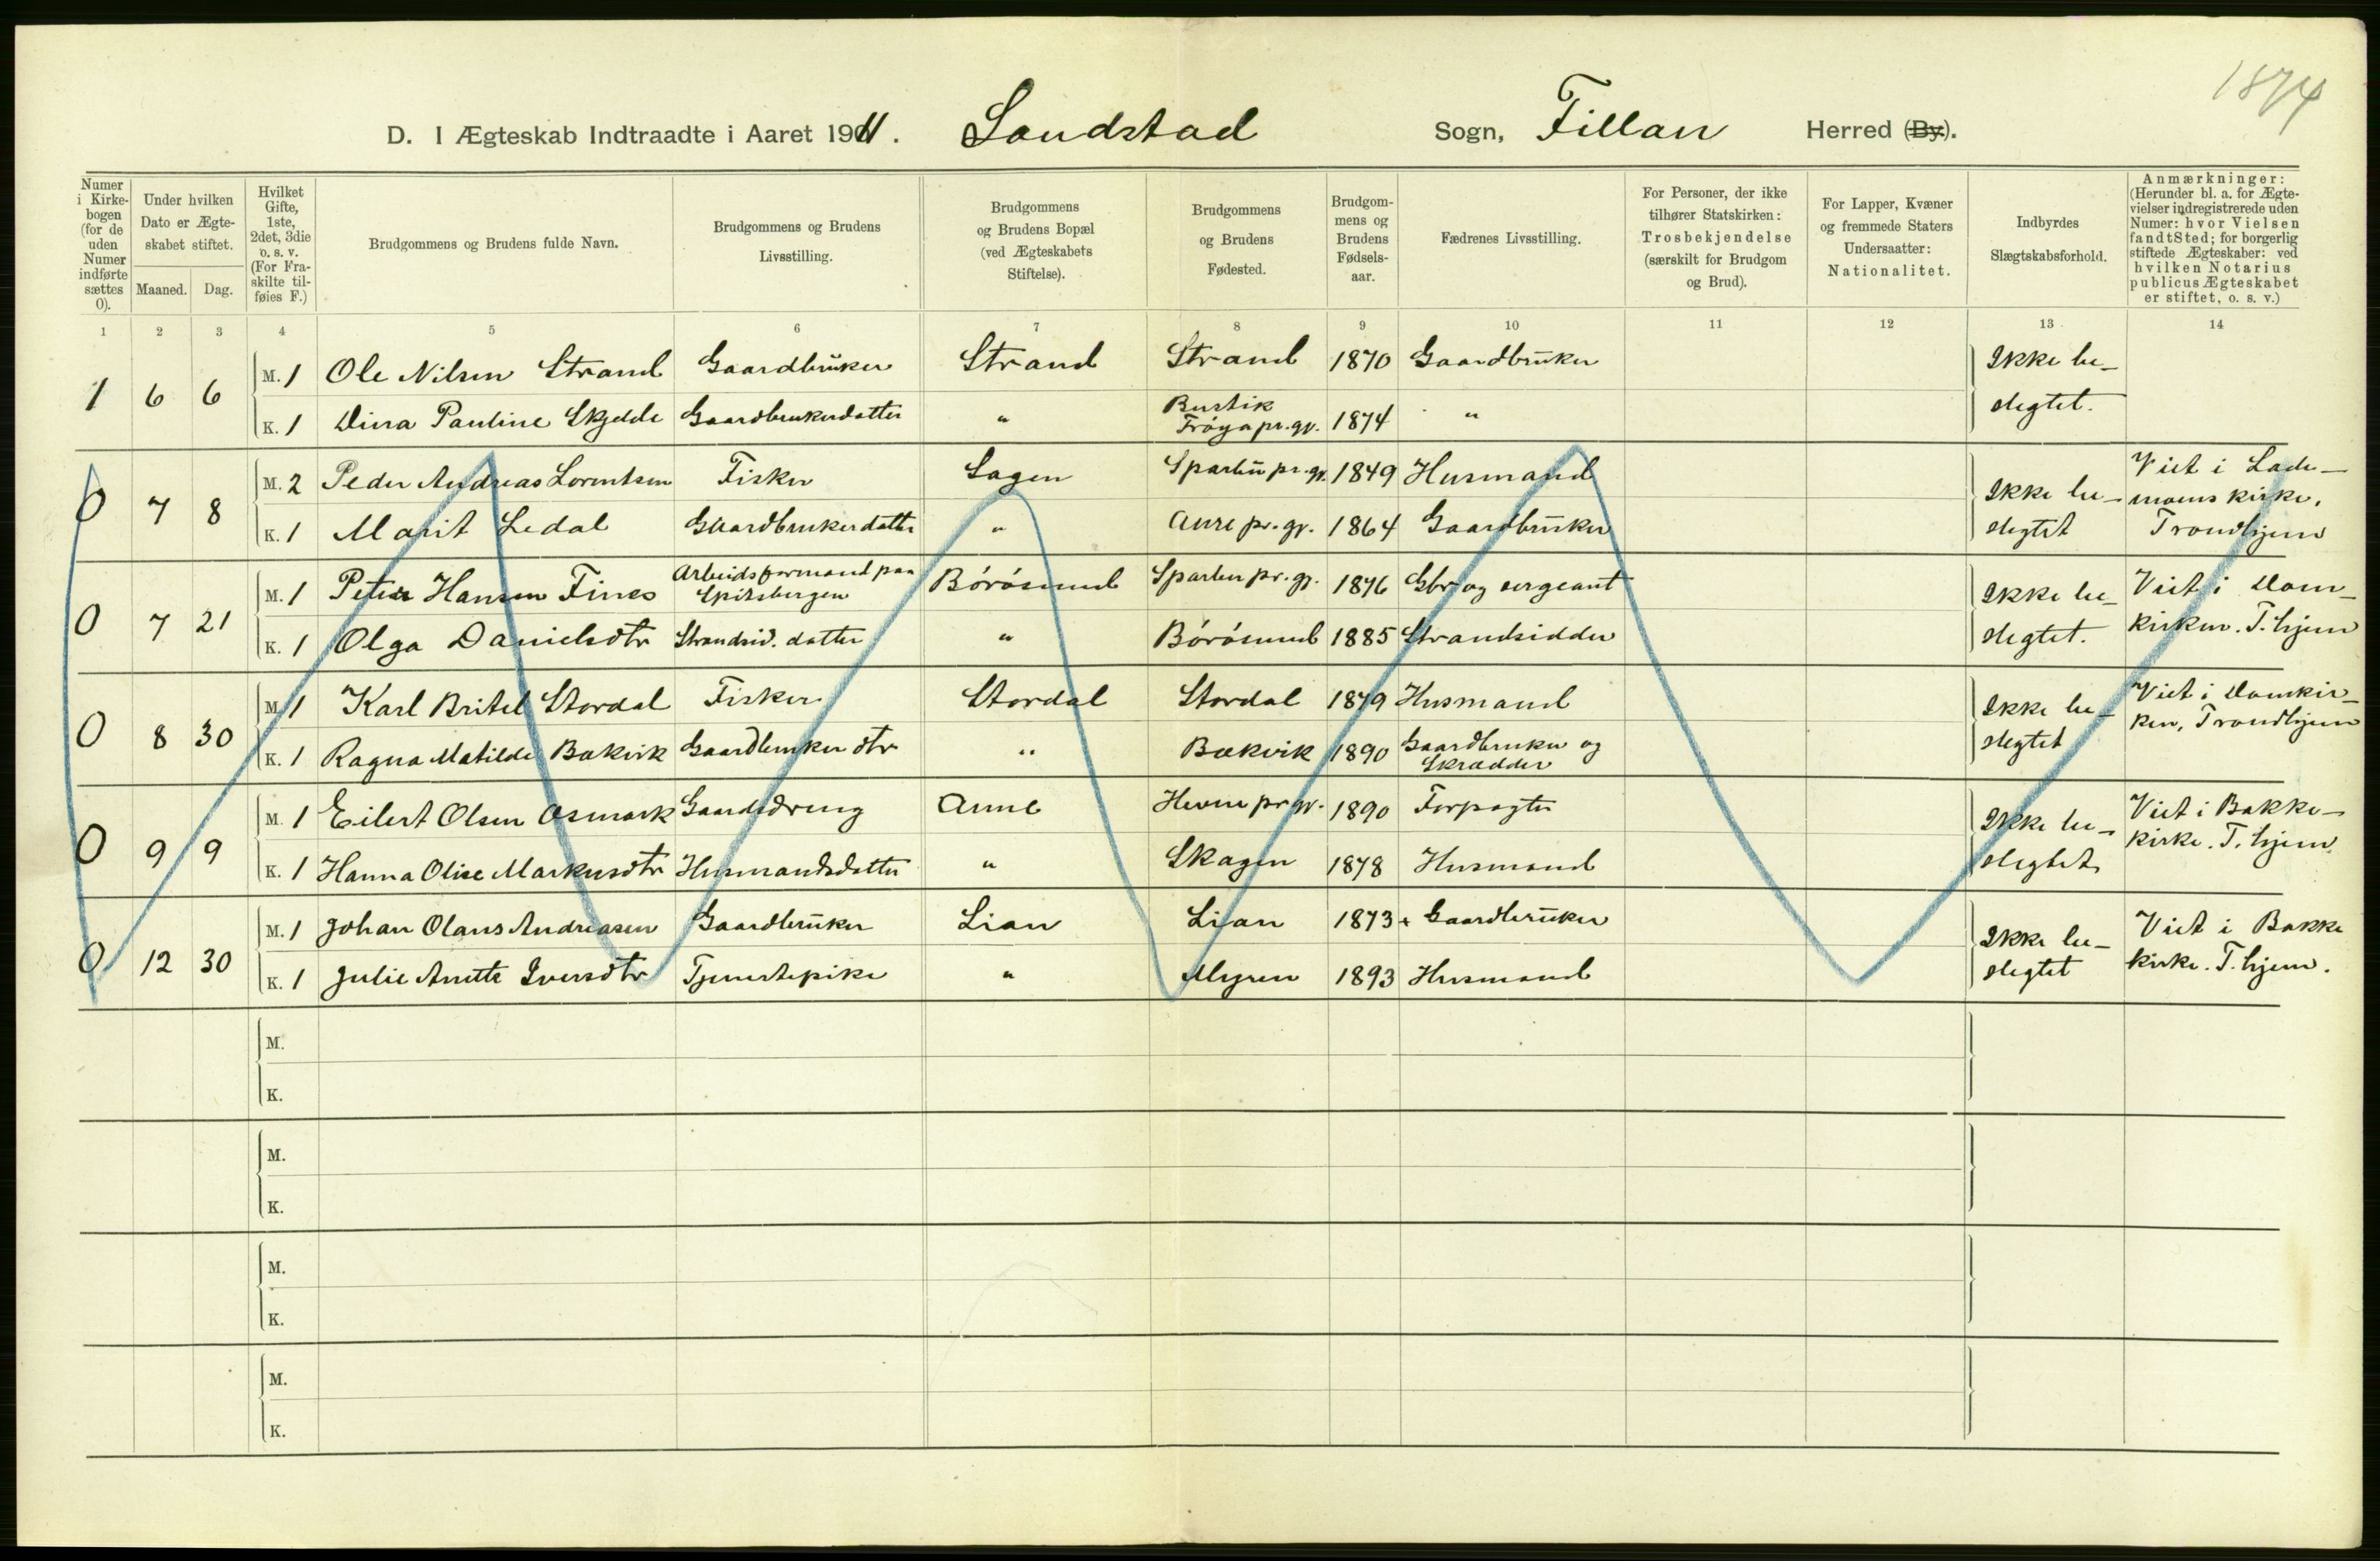 1874
D. I Ægteskab Indtraadte i Aaret 1911. Sandstad Sogn, Fillan Herred (By).
Numer i Kirkebogen (for de uden Numer indførte sættes 0).
Under hvilken Dato er Ægteskabet stiftet.
Maaned. Dag.
Hvilket Gifte, 1ste, 2det, 3die o. s. v. (For Fraskilte tilføies F.)
Brudgommens og Brudens fulde Navn.
Brudgommens og Brudens Livsstilling.
Brudgommens og Brudens Bopæl (ved Ægteskabets Stiftelse).
Brudgommens og Brudens Fødested.
Brudgommens og Brudens Fødselsaar.
Fædrenes Livsstilling.
For Personer, der ikke tilhører Statskirken: Trosbekjendelse (særskilt for Brudgom og Brud).
For Lapper, Kvæner og fremmede Staters Undersaatter: Nationalitet.
Indbyrdes Slægtskabsforhold.
Anmærkninger: (Herunder bl. a. for Ægtevielser indregistrerede uden Numer: hvor Vielsen fandt Sted; for borgerlig stiftede Ægteskaber: ved hvilken Notarius publicus Ægteskabet er stiftet, o. s. v.)
1 2 3 4 5 6 7 8 9 10 11 12 13 14
1 6 6 M. 1 Ole Nilsen Strand Gaardbruker Strand Strand 1870 Gaardbruker Ikke be-
K. 1 Dina Pauline Skjedde Gaardbrukerdatter " Bustik Frøya pr.gj. 1874 " slegtet.
0 7 8 M. 2 Peder Andreas Lorentsen Fisker Lagen Sparbu pr.gj. 1849 Husmand Ikke be- Viet i Lade-
K. 1 Marit Ledal Gaardbrukerdatter " Aure pr.gj. 1864 Gaardbruker slegtet moens kirke, Trondhjem
0 7 21 M. 1 Peter Hansen Fines Arbeidsformand paa Spitsbergen Børøsund Sparbu pr.gj. 1876 Gbr. og sergeant Ikke be- Viet i Dom-
K. 1 Olga Danielsdtr Strandsid. datter " Børøsund 1885 Strandsidder slegtet. kirken. T.hjem
0 8 30 M. 1 Karl Britel Stordal Fisker Stordal Stordal 1879 Husmand Ikke be- Viet i Domkir-
K. 1 Ragna Matilde Bækvik Gaardbruker dtr " Bækvik 1890 Gaardbruker og Skrædder slegtet ken, Trondhjem
0 9 9 M. 1 Eilert Olsen Osmark Gaardsdreng Aune Hevne pr.gj. 1890 Forpagter Ikke be- Viet i Bakke-
K. 1 Hanna Olise Markusdtr Husmandsdatter " Skagen 1878 Husmand slegtet, kirke. T.hjem.
0 12 30 M. 1 Johan Olaus Andreasen Gaardbruker Lian Lian 1873 + Gaardbruker Ikke be- Viet i Bakke
K. 1 Julie Anette Iversdtr Tjenestepike " Myren 1893 Husmand slegtet kirke. T.hjem.
M.
K.
M.
K.
M.
K.
M.
K.